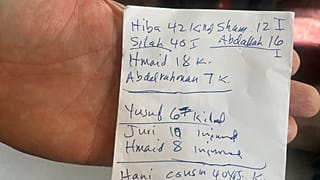 Hiba 42 Killed Sham 12 I
Silah 40 I Abdallah 16 I
Hmaid 18 K.
Abdelrahman 7 K.
Yusuf 6 Killed
Juri injured
Hmaid 8 injured
Hani cousin 40 K.